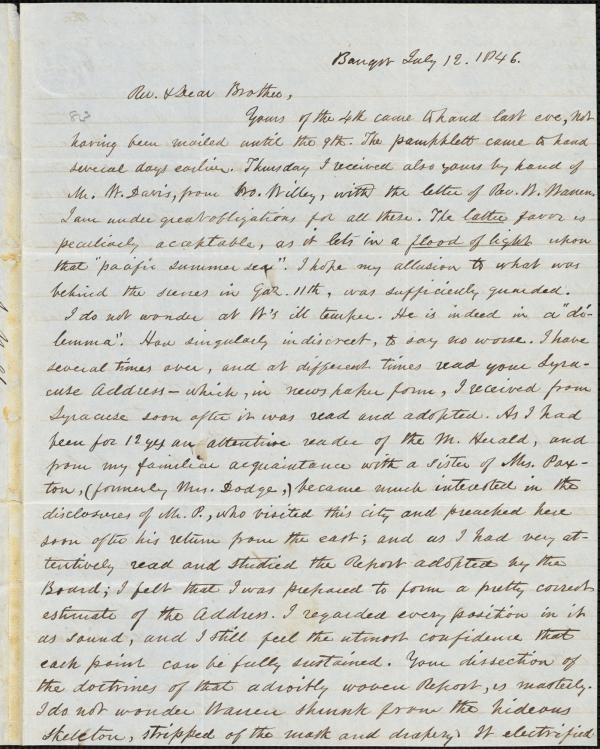 Bangor July 12. 1846.
Rev. & Dear Brother,
83
Yours of the 4th came to hand last eve, not
having been mailed until the 9th. The pamphlett came to hand
several days earlier. Thursday I received also yours by hand of
Mr. W. Davis, from Bro. Willey, with the letter of Rev. W. Warren.
I am under great obligations for all these. The latter favor is
peculiarly acceptable, as it lets in a flood of light upon
that "pacific summer sea". I hope my allusion to what was
behind the scenes in Gaz. 11th, was sufficiently guarded.
I do not wonder at W's ill temper. He is indeed in a "di-
lemma". How singularly indiscreet, to say no worse. I have
several times over, and at different times read your Syra-
cuse Address – which, in newspaper form, I received from
Syracuse soon after it was read and adopted. As I had
been for 12 yrs an attentive reader of the M. Herald, and
from my familiar acquaintance with a sister of Mrs. Pax-
ton, (formerly Mrs. Dodge,) became much interested in the
disclosures of Mr. P., who visited this city and preached here
soon after his return from the east; and as I had very at-
tentively read and studied the Report adopted by the
Board; I felt that I was prepared to form a pretty correct
estimate of the Address. I regarded every position in it
as sound, and I still feel the utmost confidence that
each point can be fully sustained. Your dissection of
the doctrines of that adroitly woven Report, is masterly.
I do not wonder Warren shrunk from the hideous
skeleton, stripped of the mask and drapery. It electrified